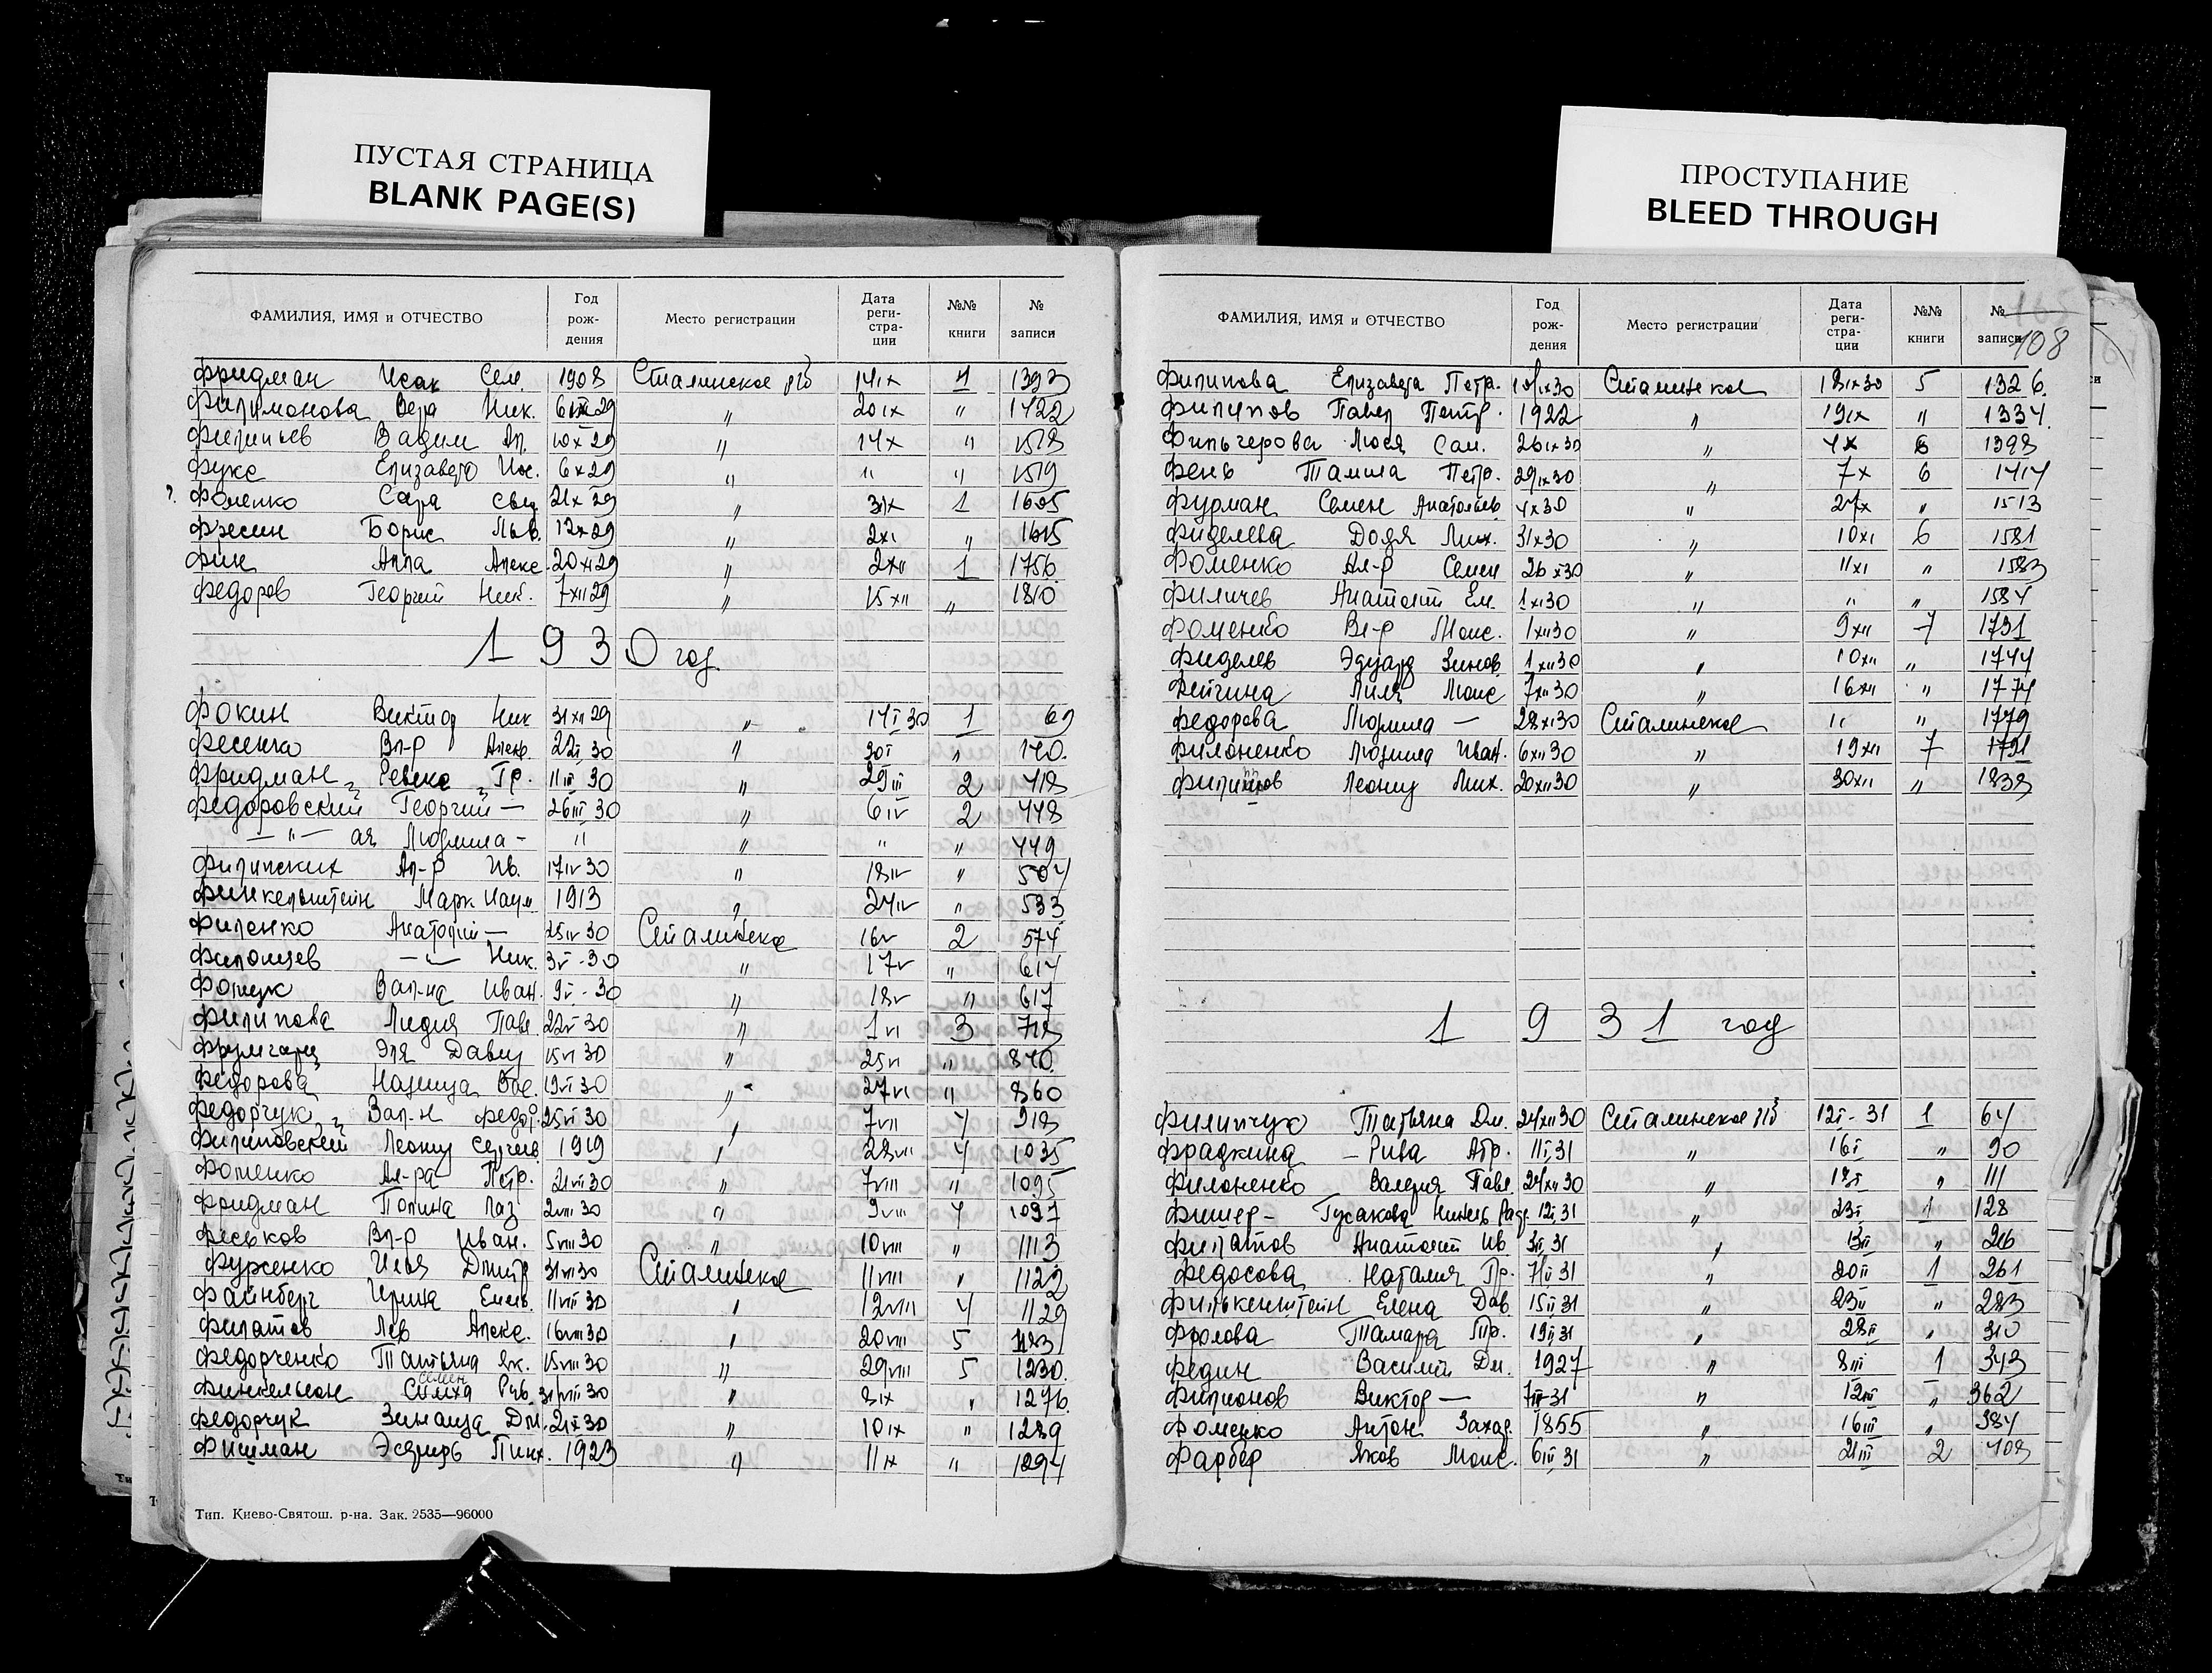 ПУСТАЯ СТРАНИЦА
BLANK PAGE(S)
ПРОСТУПАНИЕ
BLEED THROUGH
ФАМИЛИЯ, ИМЯ и ОТЧЕСТВО Год рождения Место регистрации Дата регистрации №№ книги № записи
Фридман Исак Сем. 1908 Сталинское 14 IX 1 1393
Филимонова Вера Ник. 29 " 20 IX " 1422
Филипьев Вадим Ал. 10 X 29 " 14 X " 1518
Фукс Елизавета Ис. 6 X 29 " " " 1519
? Фоменко Сара 21 X 29 " 31 X 1 1605
Фресин Борис Льв. 12 X 29 " 2 XI " 1615
Фин Алла Алекс. 20 XI 29 " 2 XII 1 1756
Федоров Георгий Ник. 7 XII 29 " 15 XII " 1810
1930 год
Фокин Виктор Ник 31 XII 29 " 14 I 30 1 69
Фесенко Вл-р Алекс. 22 I 30 " 30 I " 140.
Фридман Ревека Гр. 11 III 30 " 29 III 2 418
Федоровский Георгий — 26 III 30 " 6 IV 2 448
— " — ая Людмила - " " " " 449
Филипских Ал-р Ив. 17 IV 30 " 18 IV " 504
Финкельштейн Марк Наум 1913 " 24 IV " 533
Филенко Анатолий — 25 IV 30 Сталинское 16 V 2 574
Филонцев — " — Ник. 3 V - 30 " 17 V " 614
Вал-на Иван. 9 V - 30 " 18 V " 617
Филипова Лидия Павл. 22 V 30 " 1 VI 3 718
Эля Давид 15 VI 30 " 25 VI " 840.
Федорова Надежда Вас. 19 VI 30 " 27 VI " 860
Федорчук Вал-н Федор. 25 VI 30 " 7 VII 4 918
Филиповский Леонид Сергеев. 1919 " 28 VII 4 1035
Фоменко Ал-ра Петр. 21 VII 30 " 7 VIII " 1095
Фридман Полина Лаз 2 VIII 30 " 9 VIII 4 1097
Феськов Вл-р Иван. 5 VIII 30 " 10 VIII " 1113
Фуженко Илья Дмитр 31 VII 30 Сталинское 11 VIII " 1122
Файнберг Ирина Емел. 11 VIII 30 " 12 VIII 4 1129
Филатов Лев Алекс. 16 VIII 30 " 20 VIII 5 1183
Федорченко Татьяна Як. 15 VIII 30 " 29 VIII 5 1230.
Семен
Финкельсон Симха Рув. 31 VIII 30 " 8 IX " 1276.
Федорчук Зинаида Дм. 2 IX 30 " 10 IX " 1289
Фишман Эсфирь Пинх. 1923 " 11 IX " 1294
Тип. Киево-Святош. р-на. Зак. 2535—96000
108
ФАМИЛИЯ, ИМЯ и ОТЧЕСТВО Год рождения Место регистрации Дата регистрации №№ книги № записи
Филипова Елизавета Петр. IX 30 Сталинское 18 IX 30 5 1326.
Филипов Павел Петр. 1922 " 19 IX " 1334.
Фильчерова Люся Сам. 26 IX 30 " 4 X 6 1398
Фень Тамила Петр. 29 IX 30 " 7 X 6 1414
Фурман Семен Анатольев. 4 X 30 " 27 X " 1513
Фиделева Доля Мих. 31 X 30 " 10 XI 6 1581
Фоменко Ал-р Семен 26 X 30 " 11 XI " 1583
Филичев Анатолий Ем. 1 XI 30 " " " 1584
Фоменко Вл-р Моис. 1 XII 30 " 9 XII 7 1731
Фиделев Эдуард Зинов. 1 XII 30 " 10 XII " 1744
Фейгина Лиля Моис 7 XII 30 " 16 XII " 1774
Федорова Людмила — 28 XI 30 Сталинское " " 1779
Филоненко Людмила Иван. 6 XII 30 " 19 XII 7 1791
Филипов Леонид Мих. 20 XII 30 " 30 XII " 1838
1931 год
Филипчук Татьяна Дм. 24 XII 30 Сталинское 12 I - 31 1 64
Фрадкина — Рива Абр. 11 I 31 " 16 I " 90
Филоненко Валерия Павл. 24 XII 30 " 18 I " 111
Фишер - Гусакова Нинель 12 I 31 " 23 I 1 128
Филатов Анатолий Ив 3 II 31 " 13 II " 216
Федосова Наталия Пр. 7 II 31 " 20 II 1 261
Филькенштейн Елена Дав. 15 II 31 " 23 II " 283
Фролова Тамара Тр. 19 II 31 " 28 II " 310
Федин Василий Дм. 1927 " 8 III 1 343
Филионов Виктор — 7 III - 31 " 12 III " 362
Фоменко Антон Захар. 1855 " 16 III " 384
Фарбер Яков Моис. 6 III 31 " 21 III 2 408